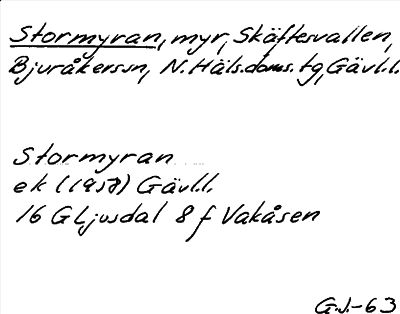 Stormyran, myr, Skäftesvallen,
Bjuråkerssn, N. Häls. doms. tg, Gävl.l.
Stormyran
ek (1957) Gävl.l.
16 G Ljusdal 8 f Vakåsen
G.J.-63